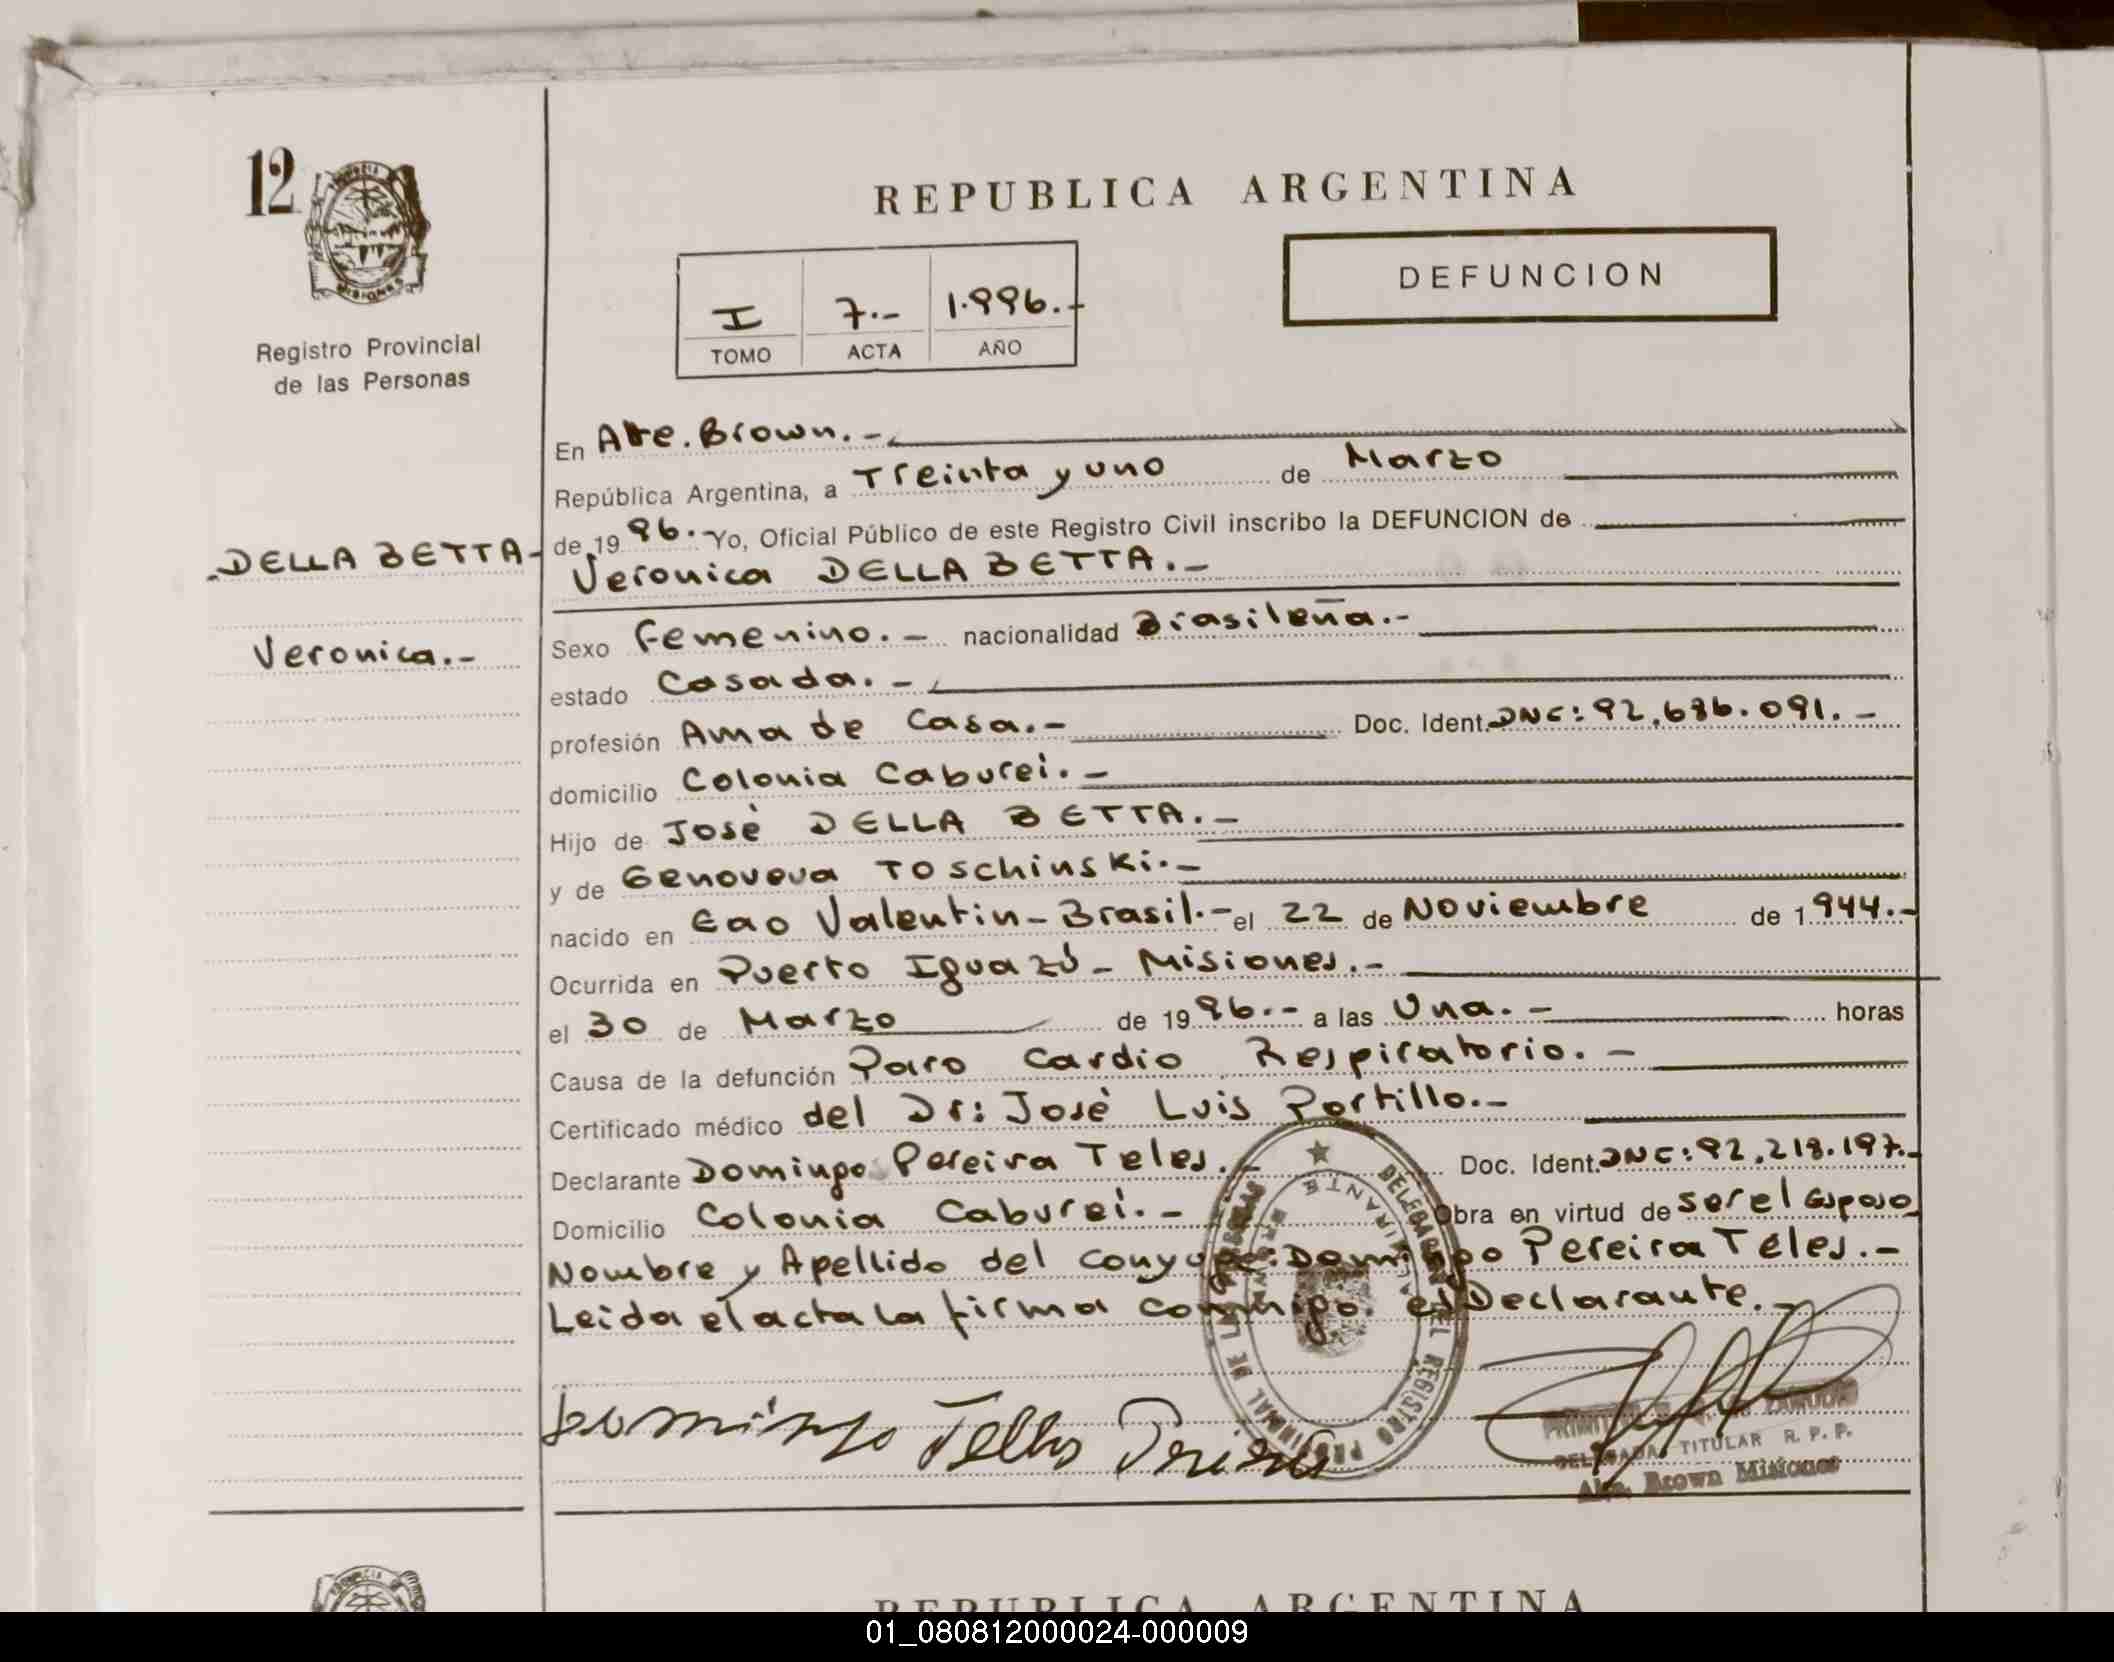 12
PROVINCIA DE
MISIONES
Registro Provincial
de las Personas
DELLA BETTA-
Veronica.-
REPUBLICA ARGENTINA
I 7.- 1.996.-
TOMO ACTA AÑO
DEFUNCION
En Alte. Brown.-
República Argentina, a Treinta y uno de Marzo
de 1996. Yo, Oficial Público de este Registro Civil inscribo la DEFUNCION de
Veronica DELLA BETTA.-
Sexo Femenino.- nacionalidad Brasileña.-
estado Casada.-
profesión Ama de Casa.- Doc. Ident. DNE: 92.686.091.-
domicilio Colonia Caburei.-
Hijo de José DELLA BETTA.-
y de Genoveva Toschinski.-
nacido en Eao Valentin-Brasil.- el 22 de Noviembre de 1944.-
Ocurrida en Puerto Iguazú- Misiones.-
el 30 de Marzo de 1996.- a las Una.- horas
Causa de la defunción Paro Cardio Respiratorio.-
Certificado médico del Dr: José Luis Portillo.-
Declarante Domingo Pereira Teles.- Doc. Ident. DNE: 92.218.197.-
Domicilio Colonia Caburei.- Obra en virtud de ser el Esposo
Nombre y Apellido del Conyuge: Domingo Pereira Teles.-
Leida el acta la firma conmigo el Declarante.-
DELEGACION DEL REGISTRO PROVINCIAL DE LAS PERSONAS
ALMIRANTE BROWN
Domingo Telles
DELEGADA TITULAR R. P. P.
Alte. Brown Misiones
REPUBLICA ARGENTINA
01_080812000024-000009